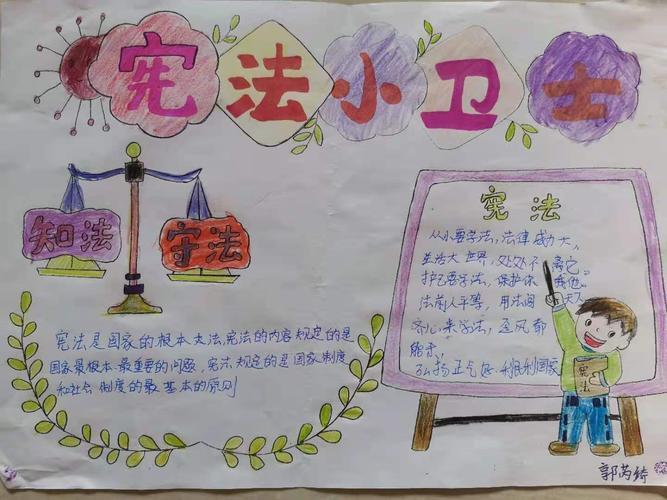 宪法小卫士
知法 守法
宪法是国家的根本大法,宪法的内容规定的是
国家最根本最重要的问题,宪法规定的是国家制度
和社会制度的最基本的原则
宪法
从小要学法,法律威力大,
生活大世界,处处不离它。
护己要学法,保护你 我他。
法前人平等,用法闯天下。
齐心来学法,歪风都
弘扬正气 利利国家
宪法
郭芮绮